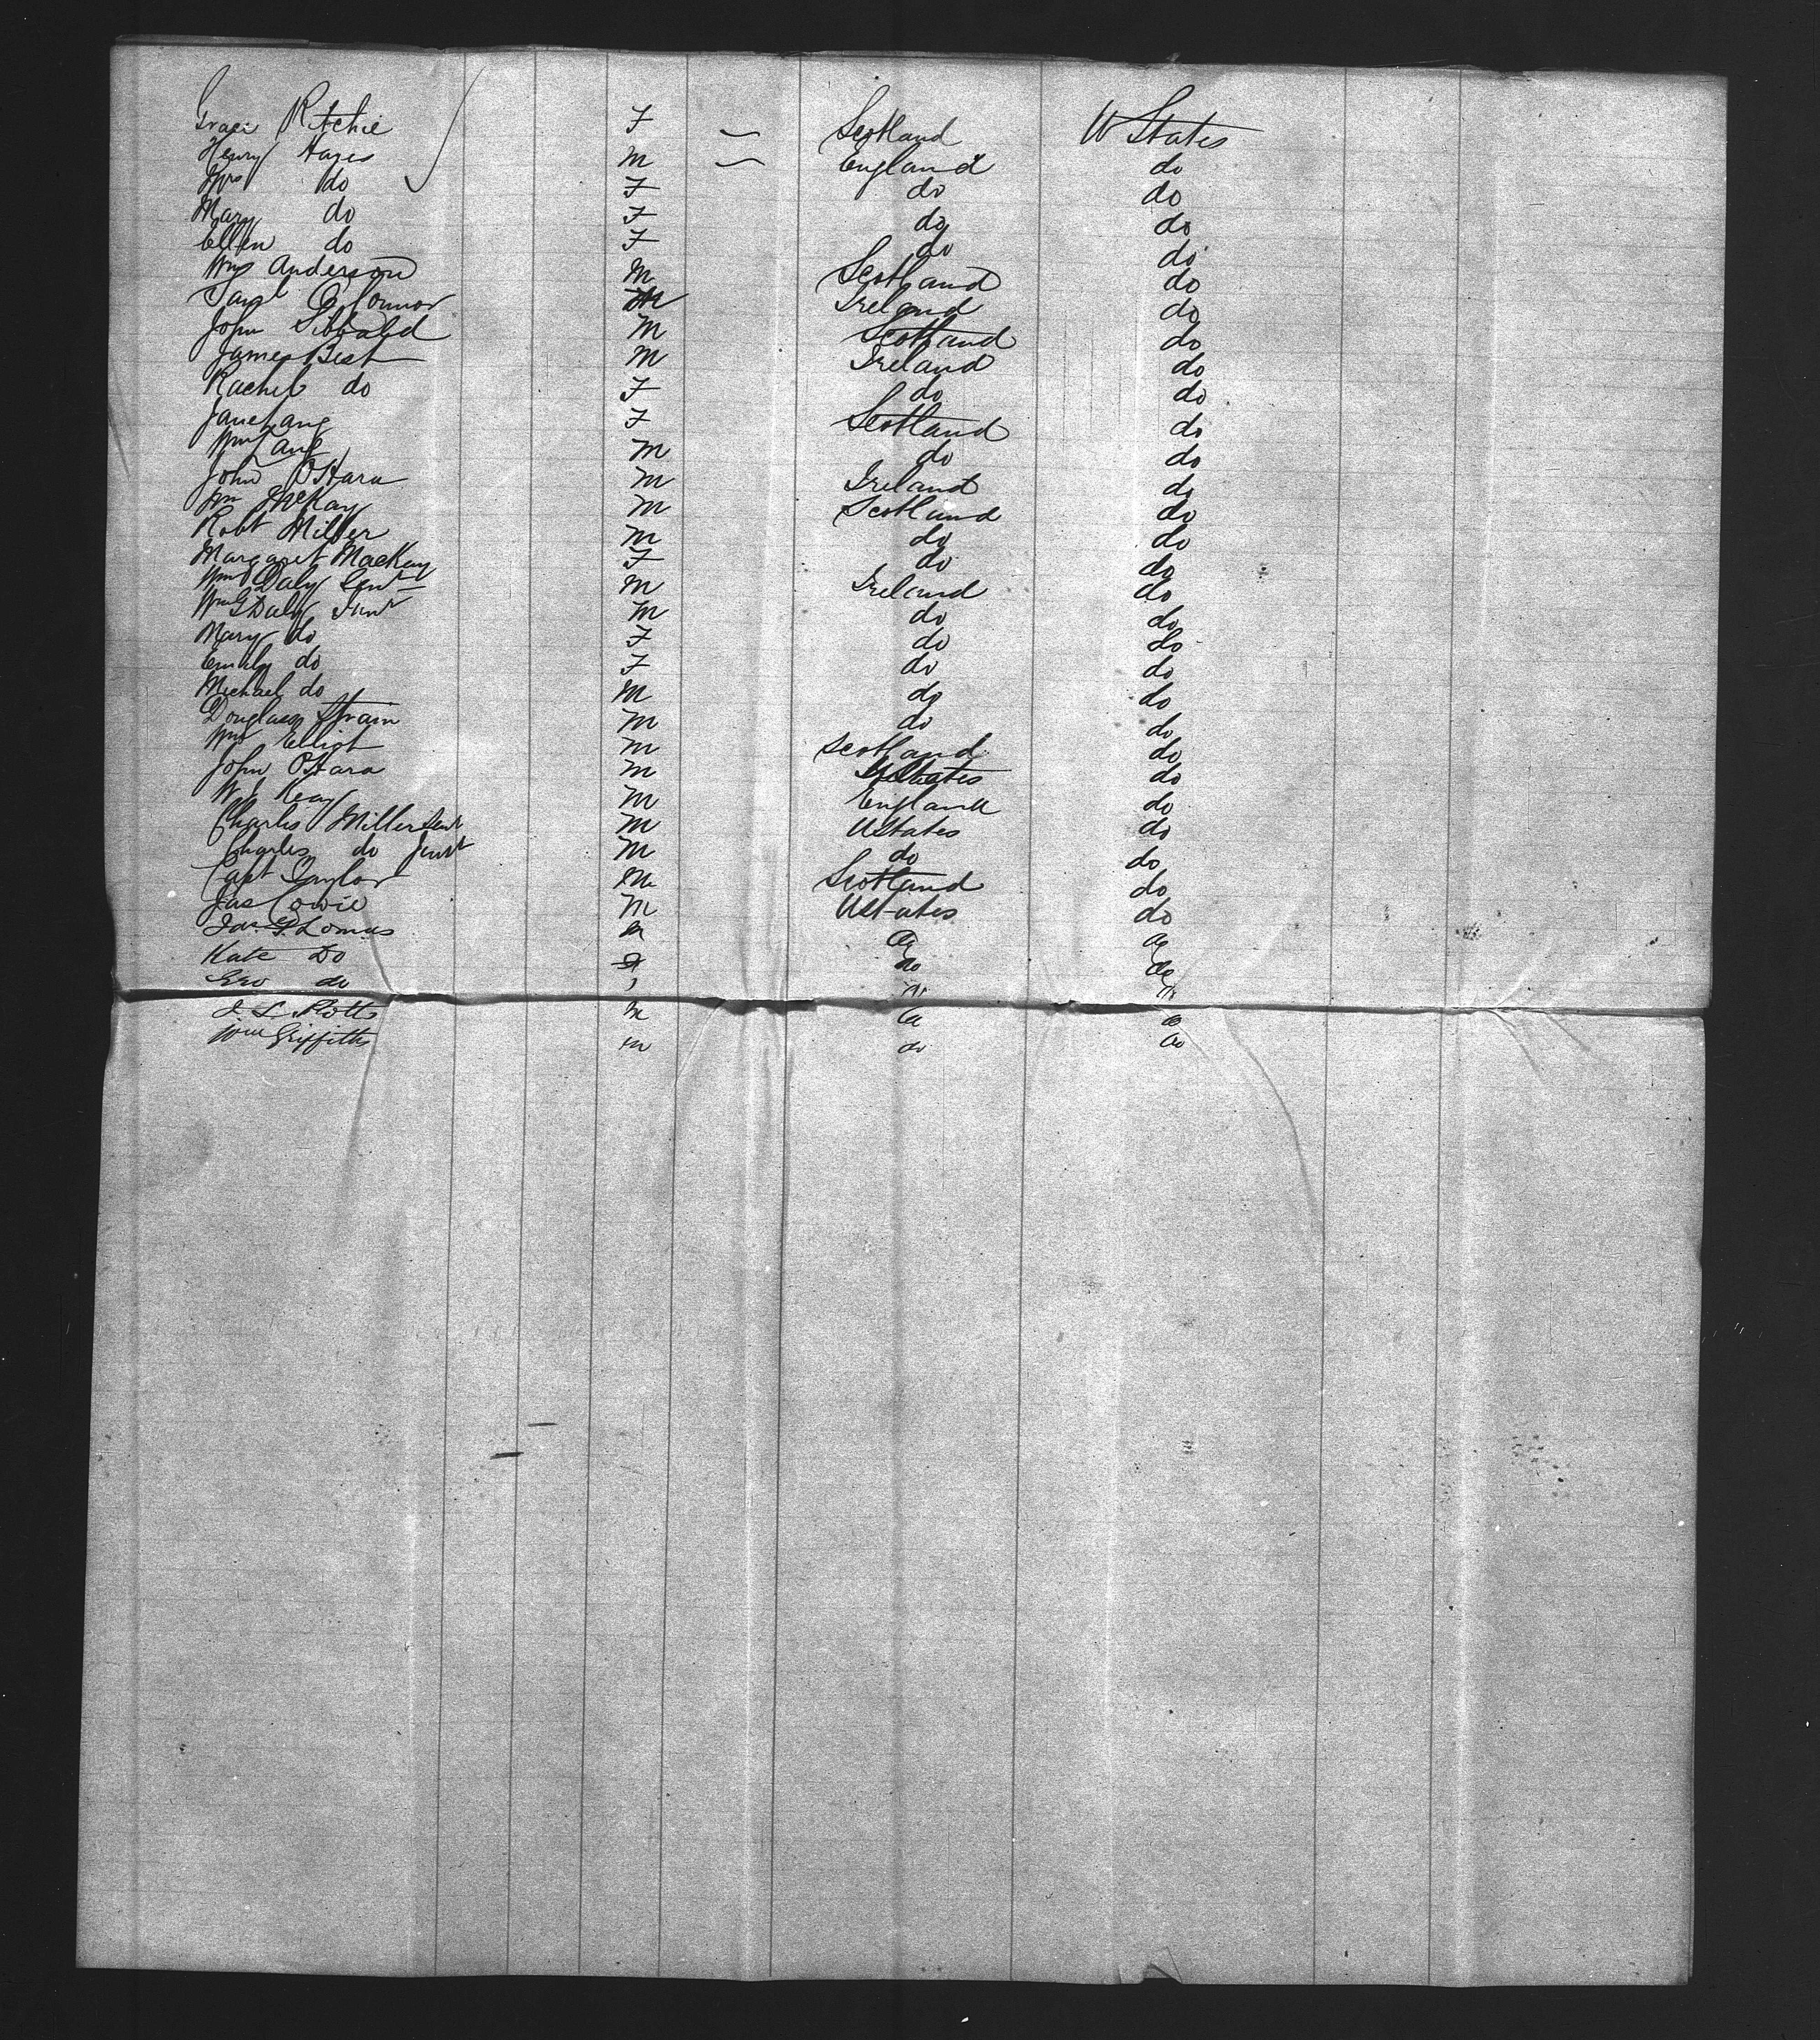 Grace Ritchie F — Scotland U States
Henry Hayes M — England do
Mrs do F do do
Mary do F do do
Ellen do F do do
Wm Anderson M Scotland do
Saml O'Connor M Ireland do
John Sibbald M Scotland do
James Best M Ireland do
Rachel do F do do
Jane Lang F Scotland do
Wm Lang M do do
John O'Hara M Ireland do
Wm McKay M Scotland do
Robt Miller M do do
Margaret MacKay F do do
Wm Daly Senr M Ireland do
Wm G Daly Junr M do do
Mary do F do do
Emily do F do do
Michael do M do do
Douglass Strain M do do
Wm Elliot M Scotland do
John O'Hara M U States do
W Keay M England do
Charles Miller Senr M U States do
Charles do Junr M do do
Capt Taylor M Scotland do
Jas Cowie M U States do
Lomas M do do
Kate Do F do do
Geo do do do
J L Potts M do do
Wm Griffiths M do do